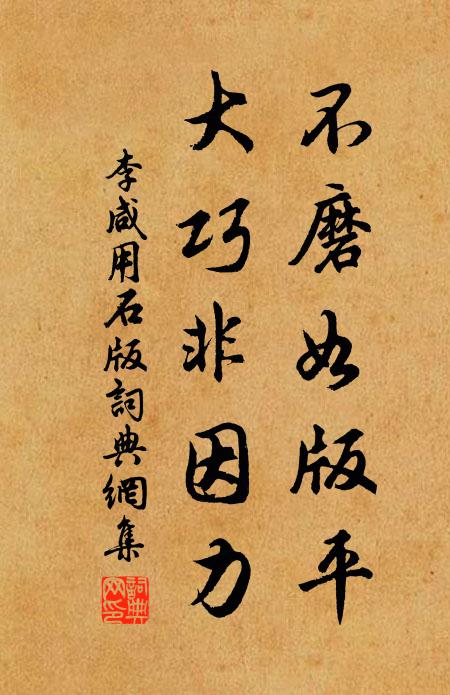 不磨如版平
大巧非因力
李咸用石版詞典網集
詞典網印